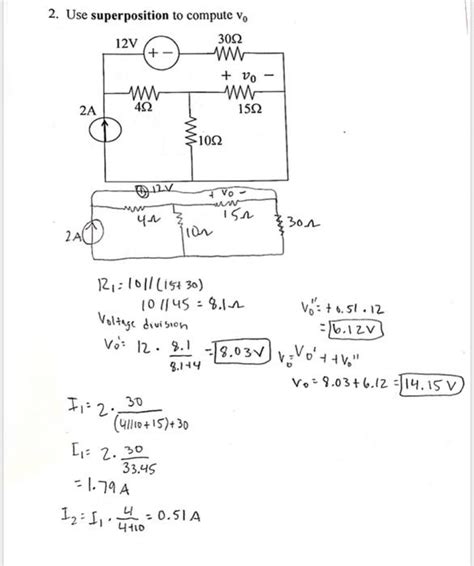 2. Use superposition to compute v₀
12V
30Ω
+ −
+ v₀ −
2A
4Ω
15Ω
10Ω
12V
+ V₀ −
4Ω
15Ω
30Ω
2A
10Ω
R₁ = 10//(15+30)
10//45 = 8.1Ω
Voltage division
V₀' = 12 · 8.1/(8.1+4) = 8.03V
V₀'' = +0.51 · 12
= 6.12V
V₀ = V₀' + + V₀''
V₀ = 8.03 + 6.12 = 14.15V
I₁ = 2 · 30/((4//10+15)+30
I₁ = 2 · 30/33.45
= 1.79A
I₂ = I₁ · 4/(4+10) = 0.51A